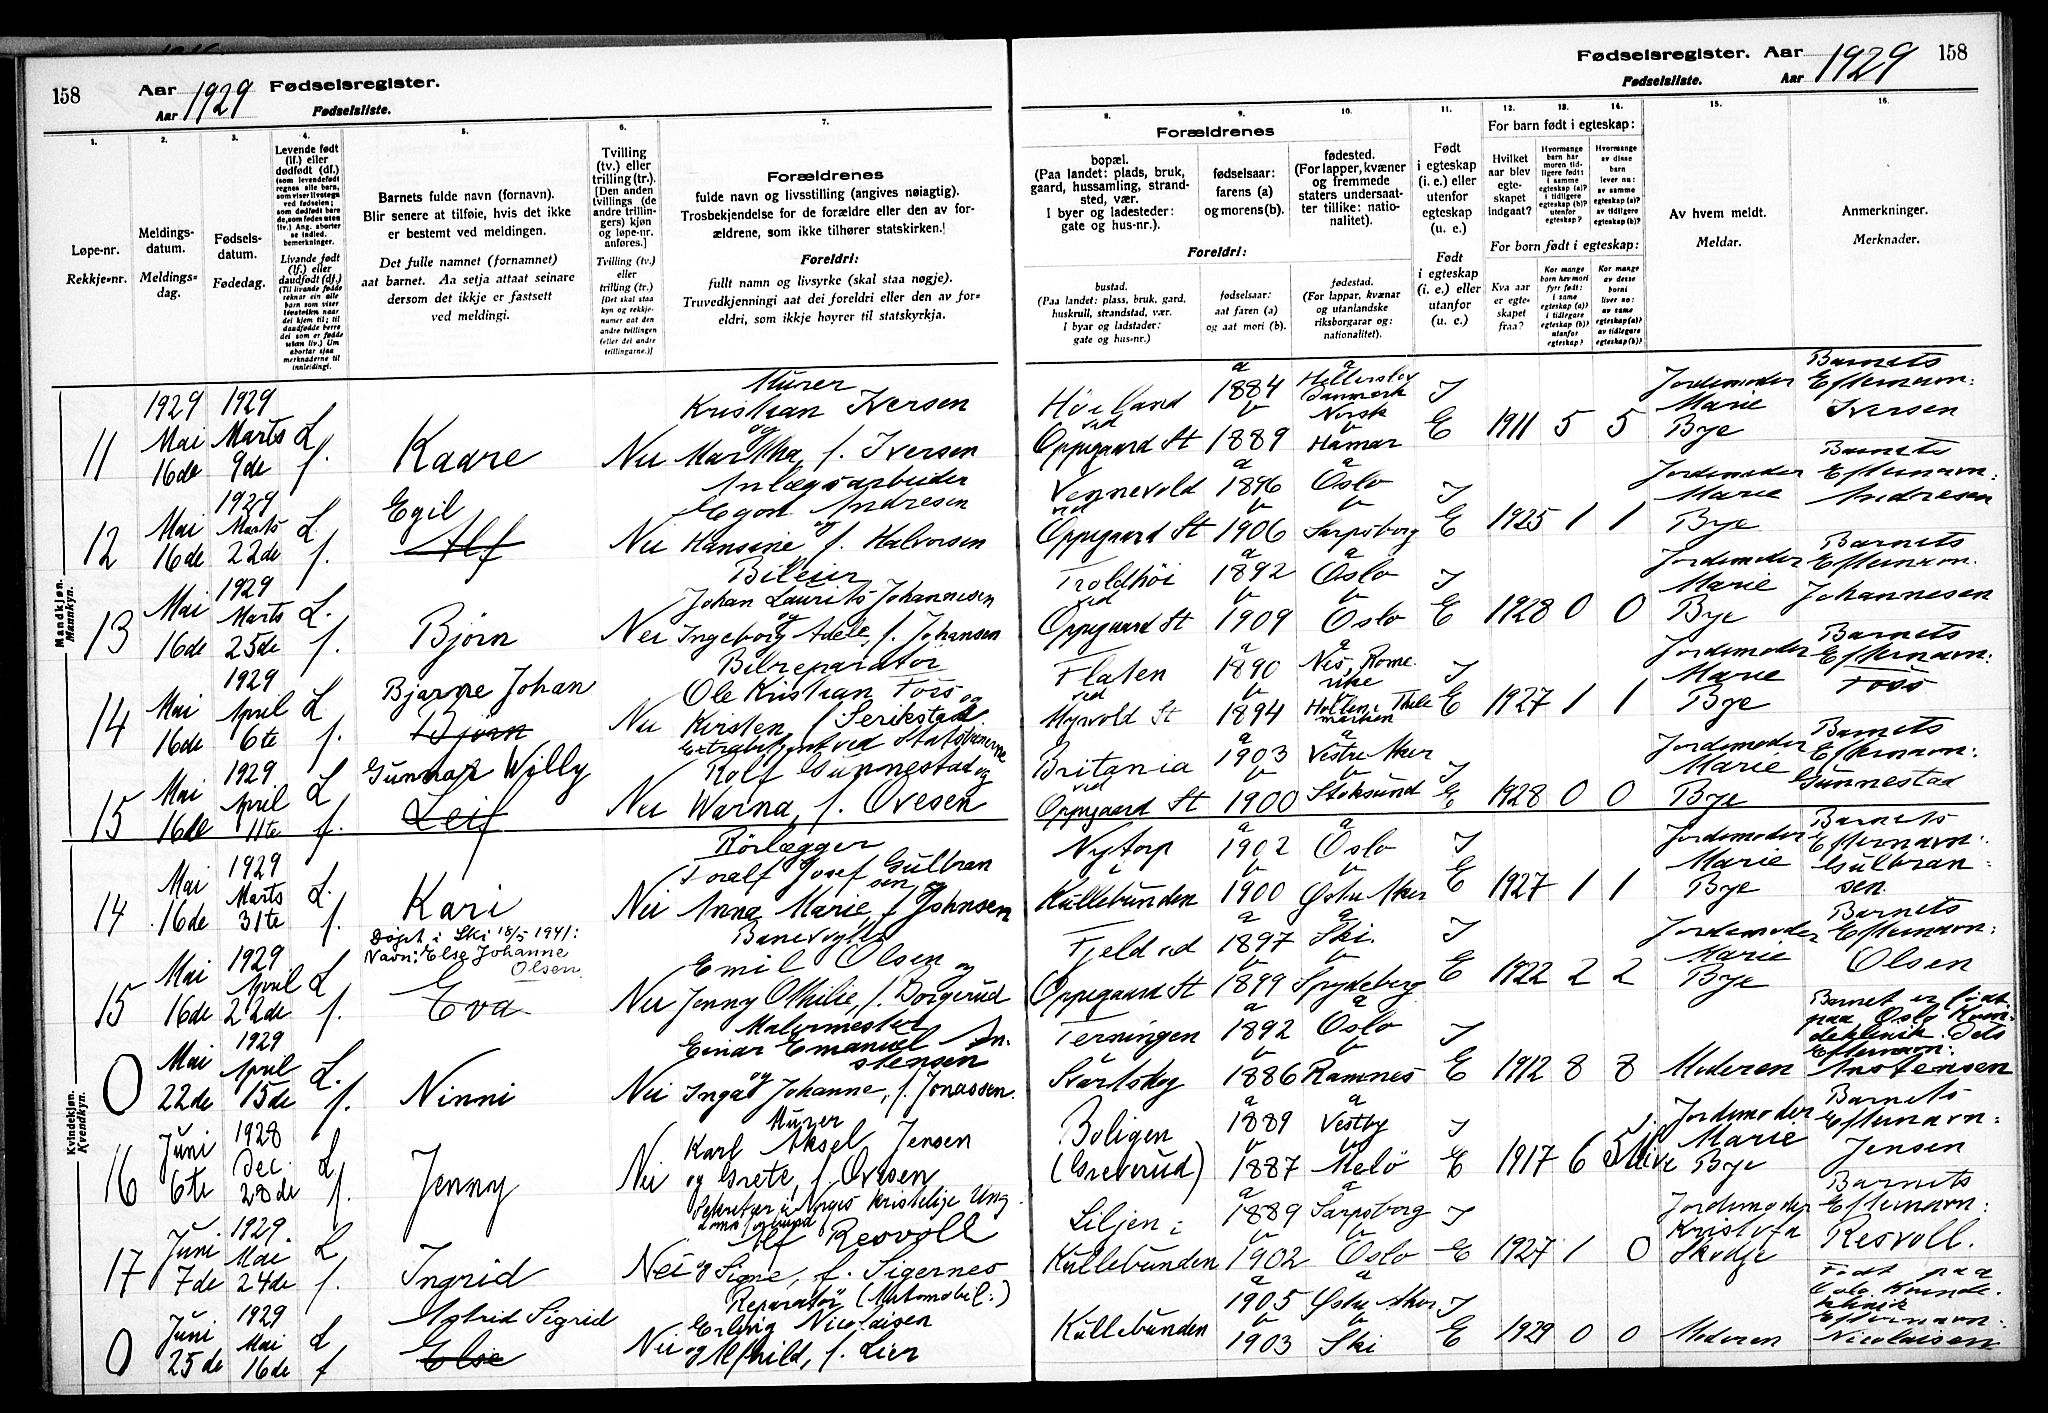 158
Aar 1929 Fødselsregister.
Aar Fødselsliste.
1.
Løpe-nr.
Rekkje=nr.
2.
Meldings-
datum.
Meldings=
dag.
3.
Fødsels-
datum.
Fødedag.
4.
Levende født
(lf.) eller
dødfødt (df.)
5.
Barnets fulde navn (fornavn).
Blir senere at tilføie, hvis det ikke
er bestemt ved meldingen.
Det fulle namnet (fornamnet)
aat barnet. Aa setja attaat seinare
dersom det ikkje er fastsett
ved meldingi.
6.
Tvilling
(tv.) eller
trilling (tr.).
[Den anden
tvillings (de
andre trillin-
gers) kjøn
og løpe-nr.
anføres.]
Tvilling (tv.)
eller
trilling (tr.)
7.
Forældrenes
fulde navn og livsstilling (angives nøiagtig).
Trosbekjendelse for de forældre eller den av for-
ældrene, som ikke tilhører statskirken.
Foreldri:
fullt namn og livsyrke (skal staa nøgje).
Truvedkjenningi aat dei foreldri eller den av for=
eldri, som ikkje høyrer til statskyrkja.
Mandkjøn.
Mannkyn.
11
1929
Mai
16de
1929
Marts
9de
L.
f.
Kaare
Nei
Murer
Kristian Iversen
og
Martha, f. Iversen
12
Mai
16de
1929
Marts
22de
L
f.
Egil
Alf
Nei
Anlægsarbeider
Egon Andresen
og
Hansine f. Halvorsen
13
Mai
16de
1929
Marts
25de
L.
f.
Bjørn
Nei
Bileier
Johan Laurits Johannesen
og
Ingeborg Adele, f. Johansen
14
Mai
16de
1929
April
6te
L.
f.
Bjarne Johan
Bjørn
Nei
Bilreparatør
Ole Kristian Foss og
Kirsten, f. Serikstad.
15
Mai
16de
1929
April
11te
L
f.
Gunnar Willy
Leif
Nei
ved Statsbanerne
Rolf Gunnestad og
Warna, f. Ovesen
Kvindekjøn.
Kvendkyn.
14
Mai
16de
1929
Marts
31te
L.
f.
Kari
Nei
Rørlægger
Toralf Josef Gulbran
sen og
Anna Marie, f Johnsen
15
Mai
16de
1929
April
22de
L
f.
Døpt i Ski 18/5 1941:
Navn: Else Johanne
Olsen.
Eva
Nei
Banevogter
Emil Olsen og
Jenny Othilie, f. Borgerud
0
Mai
22de
1929
April
15de
L.
f.
Ninni
Nei
Malermester
Einar Emanuel An-
stensen
og
Inga Johanne, f. Jonassen.
16
Juni
6te
1928
Dec.
28de
L
f.
Jenny
Nei
Murer
Karl Aksel Jensen
og Grete, f. Ovesen
17
Juni
7de
1929.
Mai
24de
L
f.
Ingrid
Nei
Sekretær i Norges kristelige Ung
doms forbund
Alf Resvoll
og Signe, f. Sigernes
0
Juni
25de
1929
Mai
16de
L
f
Astrid Sigrid
Else
Nei
Reparatør (Automobil:)
Erling Nicolaisen
og Alfhild, f. Lier
Fødselsregister. Aar 1929 158
Fødselsliste. Aar
Forældrenes
8.
bopæl.
(Paa landet: plads, bruk,
gaard, hussamling, strand-
sted, vær.
I byer og ladesteder:
gate og hus-nr.).
Foreldri:
bustad.
(Paa landet: plass, bruk, gard,
huskrull, strandstad, vær.
I byar og ladstader:
gate og hus=nr.)
9.
fødselsaar:
farens (a)
og morens (b).
fødselsaar:
aat faren (a)
og aat mori (b).
10.
fødested.
(For lapper, kvæner
og fremmede
staters undersaat-
ter tillike: natio-
nalitet).
fødestad.
(For lappar, kvænar
og utanlandske
riksborgarar og:
nationalitet).
11.
Født
i egteskap
(i. e.) eller
utenfor
egteskap
(u. e.)
Født
i egteskap
(i. e.) eller
utanfor
(u. e.)
For barn født i egteskap:
12.
Hvilket
aar blev
egte-
skapet
indgaat?
For born født i egteskap:
Kva aar
er egte=
skapet
fraa?
13.
14.
15.
Av hvem meldt.
Meldar.
16.
Anmerkninger.
Merknader.
Høiland
ved
Oppegaard St
a
1884
b
1889
a
Danmark
Norsk
b
Hamar
I
E
1911
5
5
Jordemoder
Marie
Bye
Barnets
Efternavn:
Iversen
Vennevold
ved
Oppegaard St
a
1896
b
1906
a
Oslo
b
Sarpsborg
I
E
1925
1
1
Jordemoder
Marie
Bye
Barnets
Efternavn:
Andresen
Troldhöi
ved
Oppegaard St
a
1892
b
1909
a
Oslo
b
Oslo
I
E
1928
0
0
Jordemoder
Marie
Bye
Barnets
Efternavn.
Johannesen
Flaten
ved
Myrvold St
a
1890
b
1894
a
Nes, Rome
rike
b
Holten i Thele
marken
I
E
1927
1
1
Jordemoder
Marie
Bye
Barnets
Efternavn:
Foss
Britania
ved
Oppegaard St
a
1903
b
1900
a
Vestre Aker
b
Stoksund
I
E
1928
0
0
Jordemoder
Marie
Bye
Barnets
Efternavn:
Gunnestad
Nytorp
i
Kullebunden
a
1902
b
1900
a
Oslo
b
Østre Aker
I
E
1927
1
1
Jordemoder
Marie
Bye
Barnets
Efternavn:
Gulbran=
sen.
Fjeld ved
Oppegaard St
a
1897
b
1899
a
Ski.
b
Spydeberg
I
E
1922
2
2
Jordemoder
Marie
Bye
Barnets
Efternavn:
Olsen
Terningen
Svartskog
a
1892
b
1886
a
Oslo
b
Ramnes
I
E
1912
8
8
Moderen
Barnet er født
paa Oslo Kvin-
deklinik. Dets
Efternavn:
Anstensen
Boligen
(Greverud)
a
1889
b
1887
a
Vestby
b
Melö
I
E
1917
6
5 i live
Jordemoder
Marie
Bye
Barnets
Efternavn:
Jensen
Liljen i
Kullebunden
a
1889
b
1902
a
Sarpsborg
b
Oslo
I
E
1927
1
0
Jordemoder
Kristofa
Skodje
Barnets
Efternavn:
Resvoll.
Kullebunden
a
1905
b
1903
a
Østre Aker
b
Ski
I
E
1929
0
0
Moderen
Født paa
Oslo Kvinde-
klinik
Efternavn:
Nicolaisen